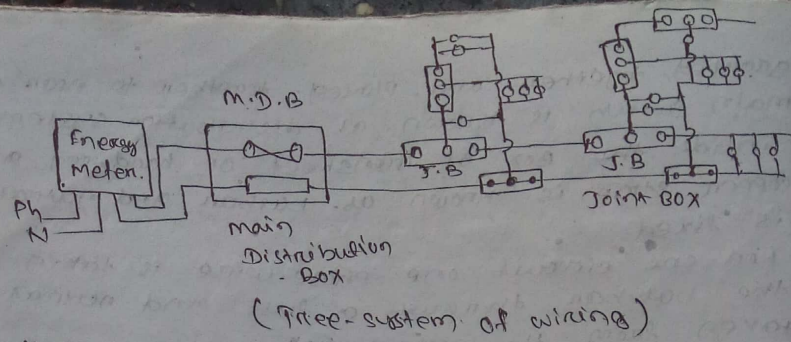 M.D.B
Energy
Meter.
Ph
N
J.B
J.B
Main
Distribution
- Box
Joint Box
(Tree-system of wiring)